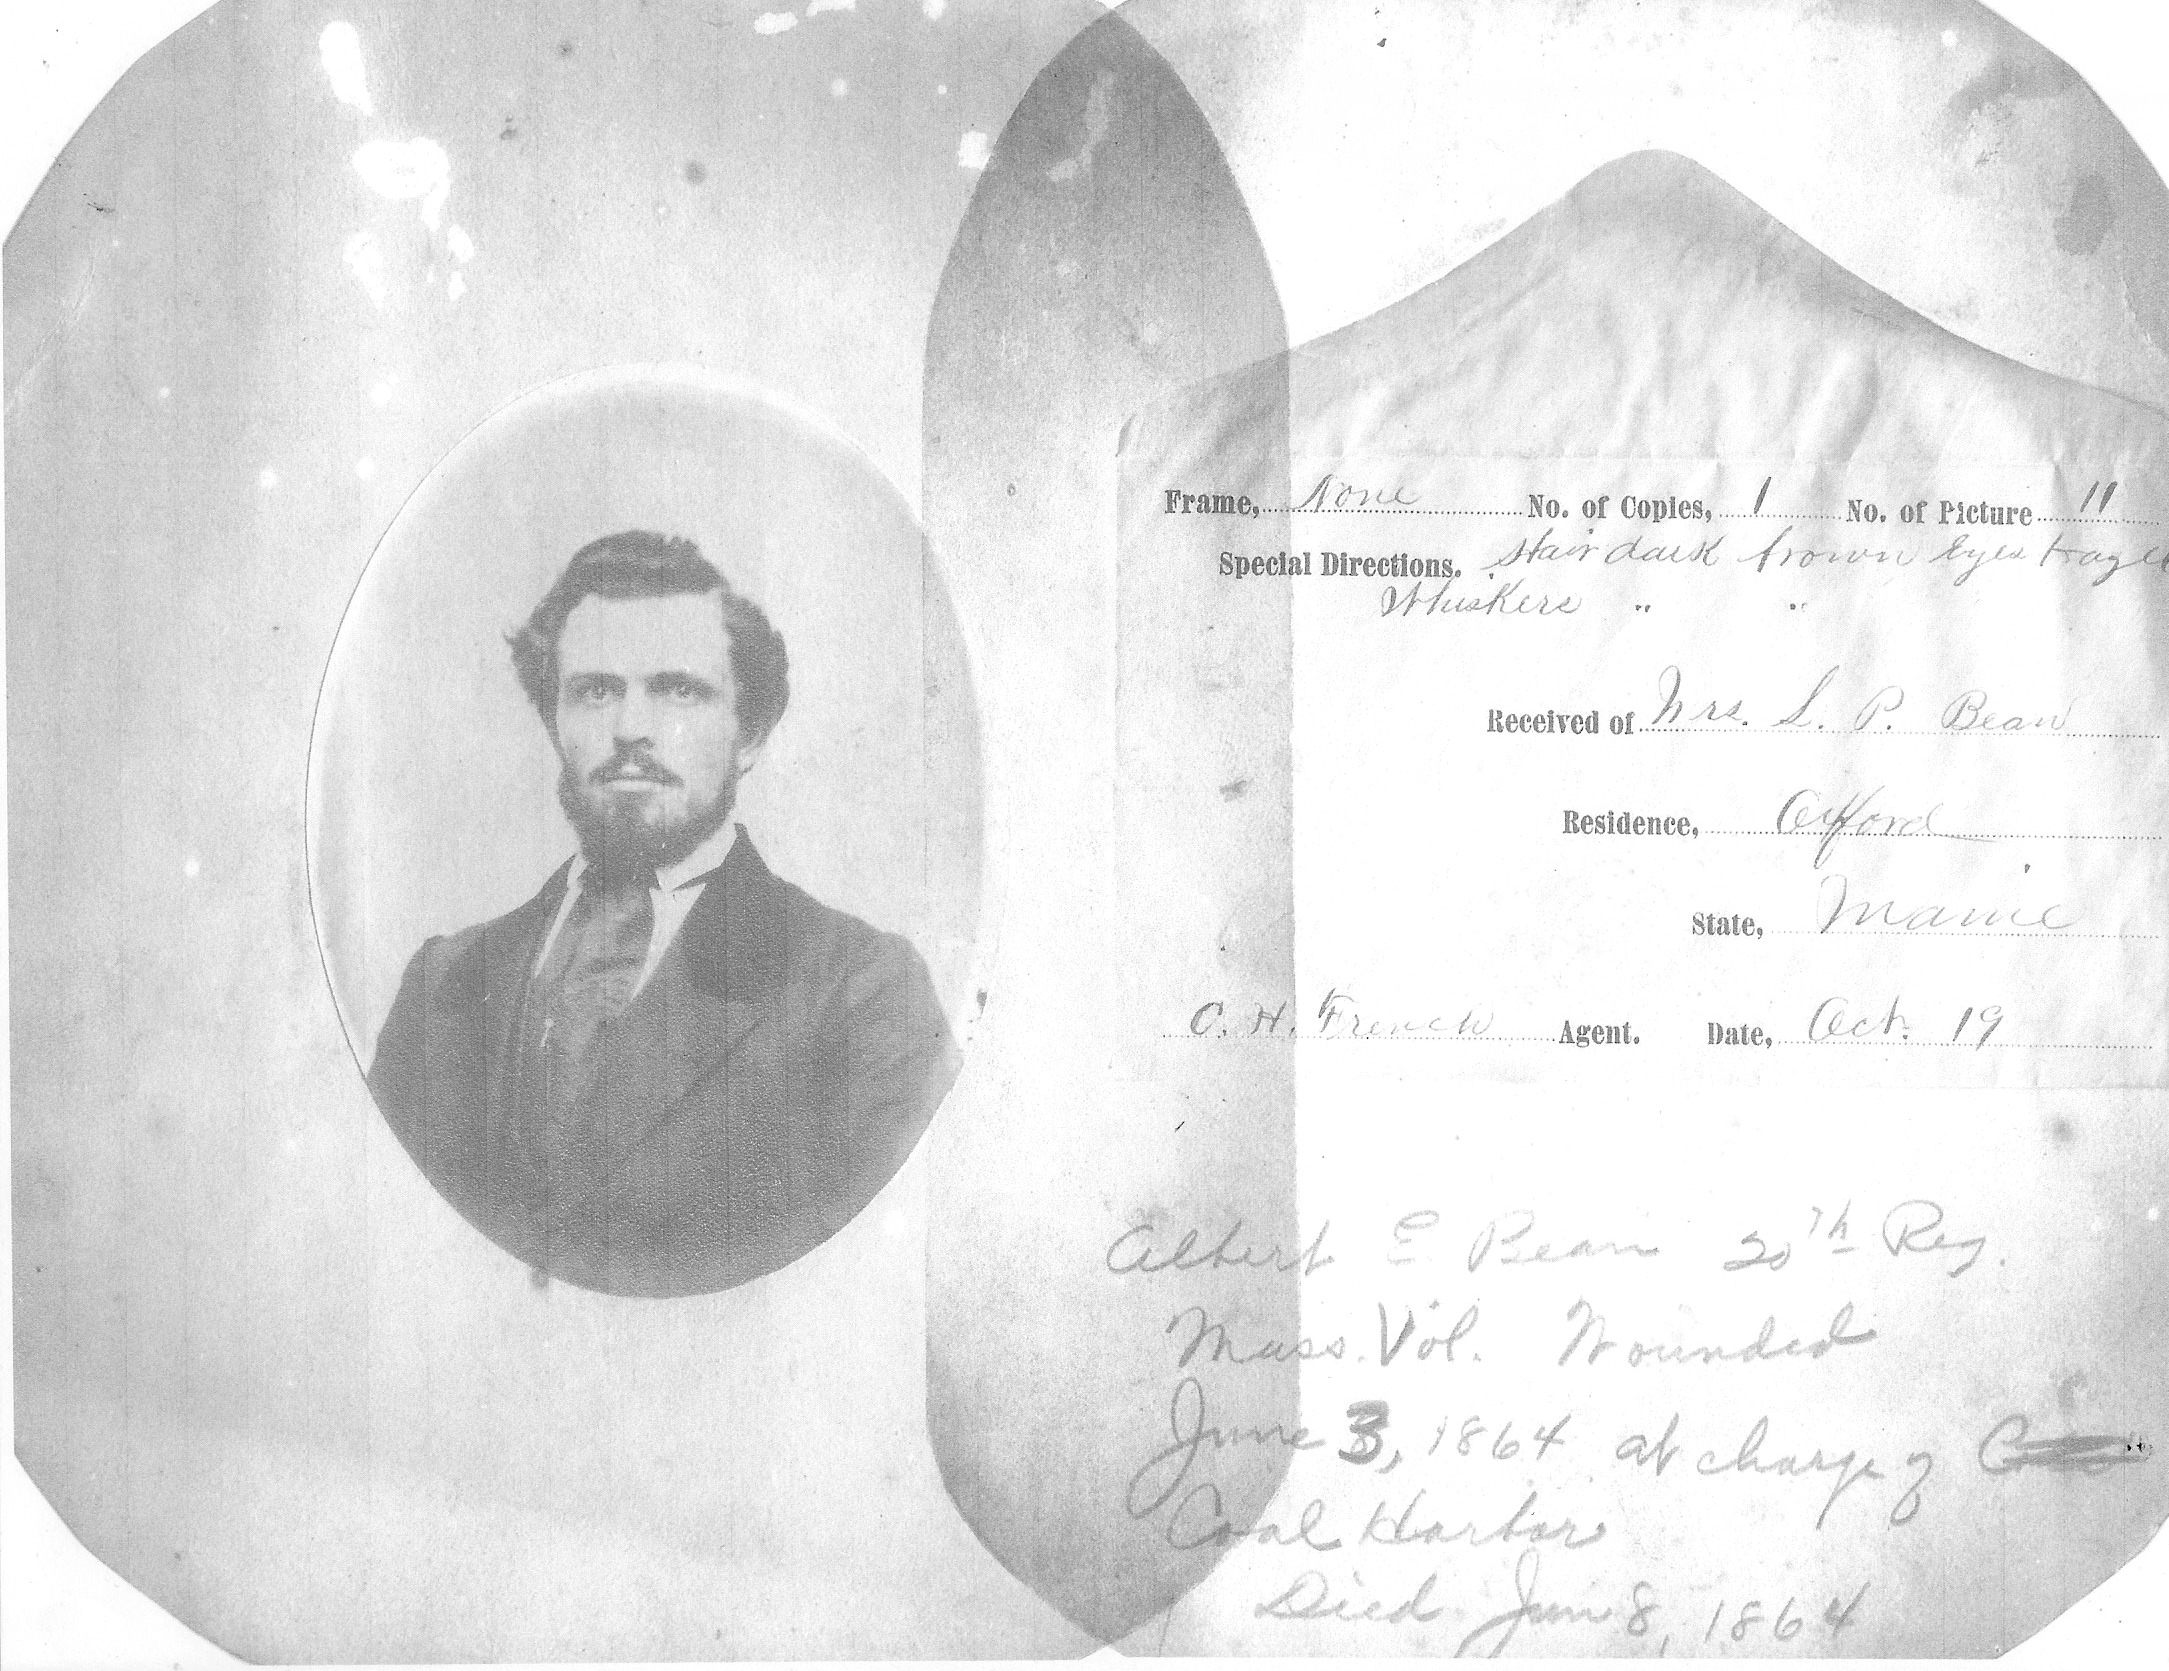 Frame, None No. of Copies, 1 No. of Picture 11
Special Directions. Hair dark brown Eyes Hazel
Whiskers " "
Received of Mrs. L. P. Bean
Residence, Oxford
State, Maine
C. H. French Agent. Date, Oct. 19
Albert E Bean 20th Reg.
Mass. Vol. Wounded
June 3, 1864 at charge of
Coal Harbor
Died June 8, 1864